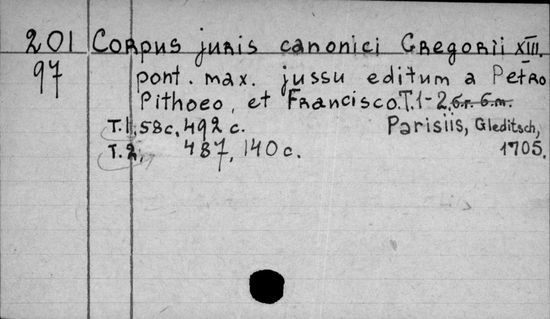 201 Corpus juris canonici Gregorii XIII.
97 pont. max. jussu editum a Petro
Pithoeo, et Francisco. T. 1-2. б.г. б.т.
T. 1. 58 с, 492 с. Parisiis, Gleditsch,
T. 2. 487, 140 с. 1705.